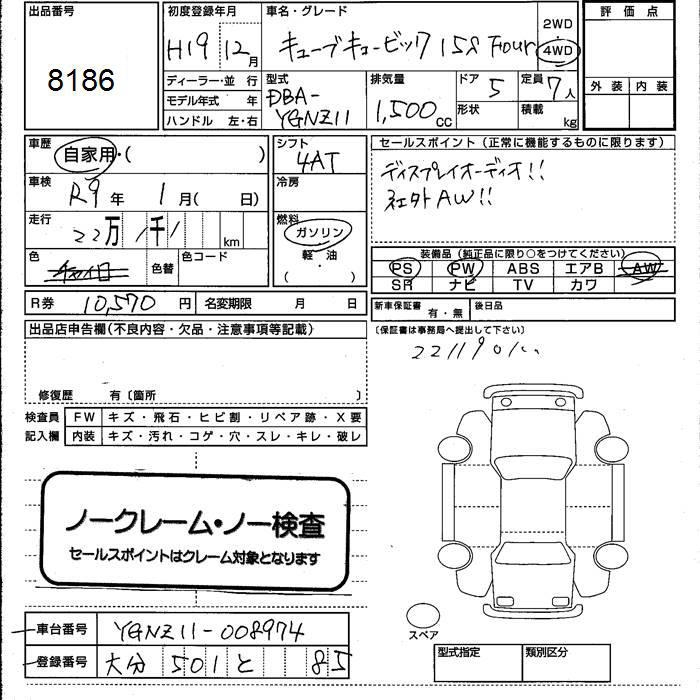 出品番号
8186
初度登録年月
H19 12月
車名・グレード
キューブキュービック 15S Four
2WD
4WD
評価点
外装 内装
ディーラー・並行
モデル年式 年
ハンドル 左・右
型式
DBA-
YGNZ11
排気量
1,500cc
ドア
5
形状
定員
7人
積載
kg
車歴
自家用・( )
車検
R9年 1月( 日)
走行
22万 1千1 km
色
色替
色コード
シフト
4AT
冷房
燃料
ガソリン
軽・油
( )
セールスポイント(正常に機能するものに限ります)
ディスプレイオーディオ!!
社外AW!!
装備品(純正品に限り○をつけてください)
PS PW ABS エアB AW
SR ナビ TV カワ
R券 10,570円
名変期限 月 日
新車保証書 有・無
後日品
(保証書は事務局へ提出して下さい)
出品店申告欄(不良内容・欠品・注意事項等記載)
修復歴 有〔箇所 〕
検査員 FW キズ・飛石・ヒビ割・リペア跡・X要
記入欄 内装 キズ・汚れ・コゲ・穴・スレ・キレ・破レ
ノークレーム・ノー検査
セールスポイントはクレーム対象となります
車台番号 YGNZ11-008974
登録番号 大分 501 と 85
スペア
型式指定
類別区分